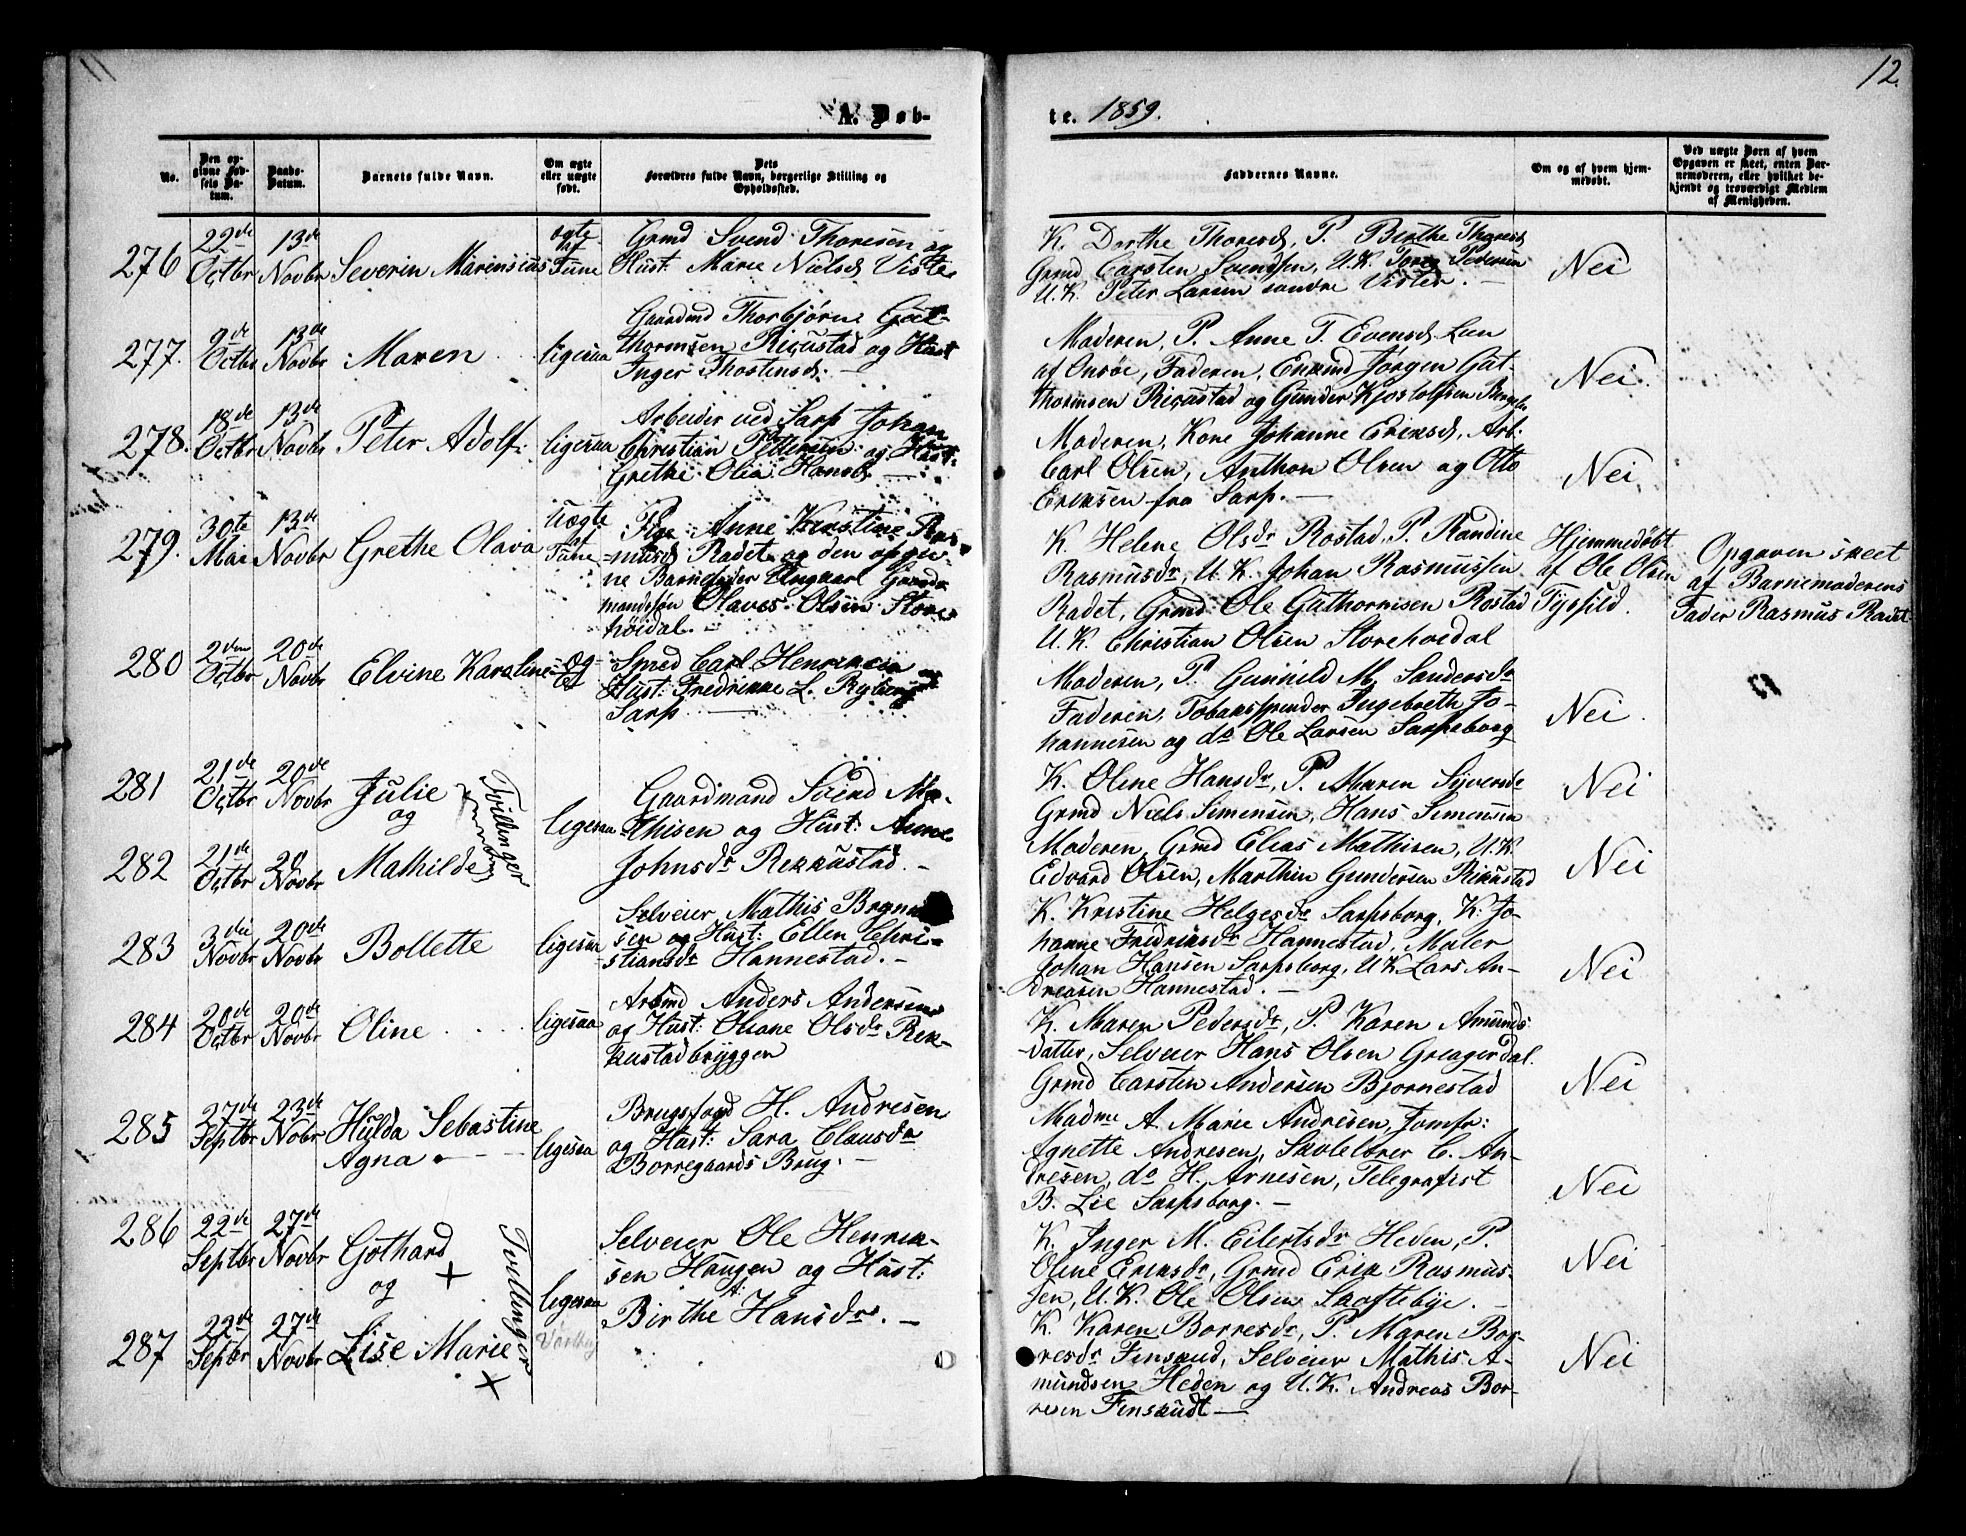 11
12.
A. Døb-
te. 1859.
No.
Den op-
givne Fød-
sels Da-
tum.
Daabs-
Datum.
Barnets fulde Navn.
Om ægte
eller uægte
født.
Dets
Forældres fulde Navn, borgerlige Stilling og
Opholdssted.
Faddernes Navne.
Om og af hvem hjem-
medøbt.
Ved uægte Børn af hvem
Opgaven er skeet, enten Bar-
nemoderen, eller hvilket be-
kjendt og troværdigt Medlem
af Menigheden.
276 22de Octbr 13de Novbr Severin Marensius
ægte
af
Tune
Grmd Svend Thoresen og
Hust: Marie Nielsd Viste
K. Dorthe Thoresd, P. Birthe Thoresd
Grmd Carsten Svendsen, U.K. Tore Pedersen
U.K. Peter Larsen søndre Visten. —
Nei
277. 9de Octbr 13de Novbr Maren ligesaa
Gaardmd Thorbjørn Gut-
thormsen Rikustad og Hust
Inger Thostensd. —
Moderen, P. Anne T. Evensd Lun
af Onsøe, Faderen, Enkemd Jørgen Gut-
thormsen Rikustad og Gunder Kjostolfsen
Nei.
278. 18de Octbr 13de Novbr Peter Adolf ligesaa
Arbeider ved Sarp Johan
Christian Pettersen og Hust:
Grethe Olia Hansd —
Moderen, Kone Johanne Eriksd, Arb:
Carl Olsen, Anthon Olsen og Otto
Eriksen fra Sarp. —
Nei
279. 30te Mai 13de Novbr Grethe Olava
Uægte
af
Tune
Pige Anne Kirstine Ras-
musd Radet og den opgiv-
ne Barnefader Ungkarl Gaard-
mandssøn Olaves Olsen Store-
høidal. —
K. Helene Olsdr Rostad, P. Randine
Rasmusdr, U.K. Johan Rasmussen
Radet, Grmd Ole Guthormsen Rostad
U.K. Christian Olsen Storehoedal
Hjemmedøbt
af Ole Olsen
Tysfild.
Opgaven skeet
af Barnemoderens
Fader Rasmus Radet
280 2den Octbr 20de Novbr Elvine Karoline Æg-
te
Smed Carl Henriksen og
Hust: Fredrikke L. Ryberg
Sarp —
Moderen, P. Gunnild M. Sandersdr
Faderen, Tobaksspinder Ingebreth Jo-
hannesen og do Ole Larsen Sarpsborg
Nei.
281 21de Octbr 20de Novbr Julie
og
Tvillinger
282 21de Octbr 20 Novbr Mathilde
ligesaa
Gaardmand Svend Ma-
thisen og Hust: Anne
Johnsdr Rekkustad. —
K. Oline Hansdr, P. Maren Syversdr
Grmd Niels Simensen, Hans Simensen
Nei
Moderen, Grmd Elias Mathisen, U.K.
Edvard Olsen, Marthin Gundersen Rikustad
Nei
283 3die Novbr 20de Novbr Bollette ligesaa
Selveier Mathis Brynn-
sen og Hust: Ellen Chri-
stiansdr Hannestad. —
K. Kristine Helgesdr Sarpsborg, K. Jo-
hanne Fredriksdr Hannestad, Maler
Johan Hansen Sarpsborg, U.K. Lars An-
dreasen Hannestad. —
Nei
284 20de Octbr 20de Novbr Oline ligesaa
Arbmd Anders Andersen
og Hust: Oliane Olsdr Rek-
kustadbryggen
K. Maren Pedersdr, P. Karen Amunds-
datter, Selveier Hans Olsen Greagerdal.
Grmd Carsten Andersen Bjørnestad
Nei
285 27de Septbr 23de Nobr Hulda Sebastine
Agna
ligesaa
Brugsfogd H. Andresen
og Hust: Sara Clausdr
Borregaards Brug. —
Madme A. Marie Andresen, Jomfr:
Agnette Andresen, Skolelærer C. An-
dresen, do H. Arnesen, Telegrafist
B. Lie Sarpsborg. —
Nei
286 22de Septbr 27de Novbr Gothard +
og
Tvillinger
ligesaa
Varteig
287 22de Septbr 27de Novbr Lise Marie +
Selveier Ole Henrik-
sen Haugen og Hust:
Birthe Hansdr. —
K. Inger M. Eilertsdr Heden, P.
Oline Eriksdr, Grmd Erik Rasmus-
sen, U.K. Ole Olsen Skoftebye. —
Nei
K. Karen Borresdr, P. Maren Bor-
resdr Finskud, Selveier Mathis A-
mundsen Heden og U.K. Andreas Bor-
resen Finskudt —
Nei